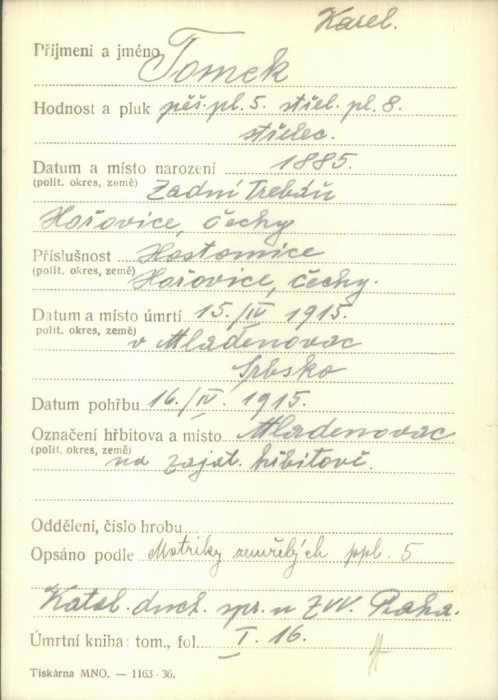 Karel.
Příjmení a jméno Tomek
Hodnost a pluk pěš. pl. 5. střel. pl. 8.
střelec.
Datum a místo narození 1885.
(polit. okres, země) Zadní Třebáň
Hořovice, Čechy
Příslušnost Hostomice
(polit. okres, země) Hořovice, Čechy.
Datum a místo úmrtí 15./IV. 1915.
polit. okres, země) v Mladenovac
Srbsko
Datum pohřbu 16./IV. 1915.
Označení hřbitova a místo Mladenovac
(polit. okres, země) na zajat. hřbitově.
Oddělení, číslo hrobu
Opsáno podle Matriky zemřelých ppl. 5
Katol. duch. spr. u ZVV. Praha.
Úmrtní kniha: tom., fol. I. 16.
Tiskárna MNO. — 1163-36.